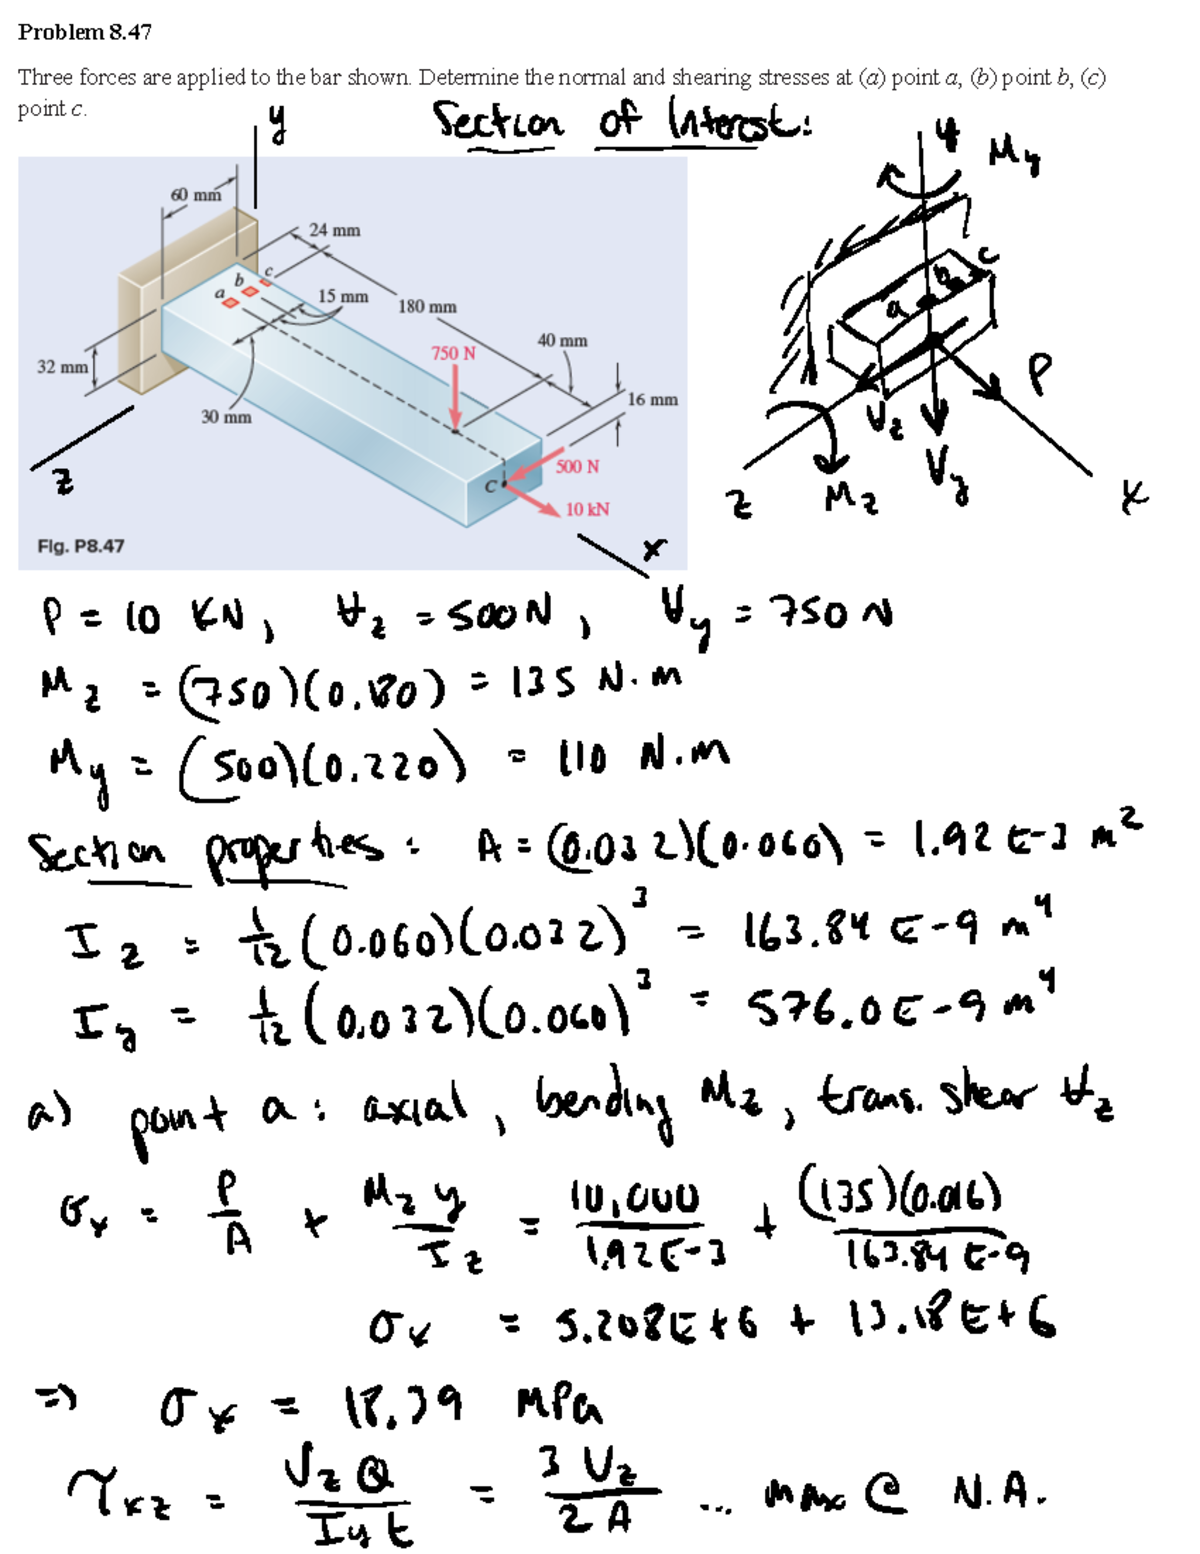 Problem 8.47
Three forces are applied to the bar shown. Determine the normal and shearing stresses at (a) point a, (b) point b, (c)
point c.
y
Section of Interest:
y
My
60 mm
24 mm
c
b
a
15 mm
180 mm
40 mm
750 N
32 mm
16 mm
30 mm
500 N
C
10 kN
z
x
Fig. P8.47
c
b
a
P
Vz
Vy
z
Mz
x
P = 10 KN, Vz = 500 N, Vy = 750 N
Mz = (750)(0.180) = 135 N.m
My = (500)(0.220) = 110 N.m
Section properties: A = (0.032)(0.060) = 1.92 E-3 m²
Iz = 1/12 (0.060)(0.032)³ = 163.84 E-9 m⁴
Iy = 1/12 (0.032)(0.060)³ = 576.0 E-9 m⁴
a) point a: axial, bending Mz, trans. shear Vz
σx = P/A + Mz y/Iz = 10,000/1.92E-3 + (135)(0.016)/163.84 E-9
σx = 5.208E+6 + 13.18E+6
=> σx = 18.39 MPa
τxz = Vz Q/Iy t = 3 Vz/2 A ... max @ N.A.